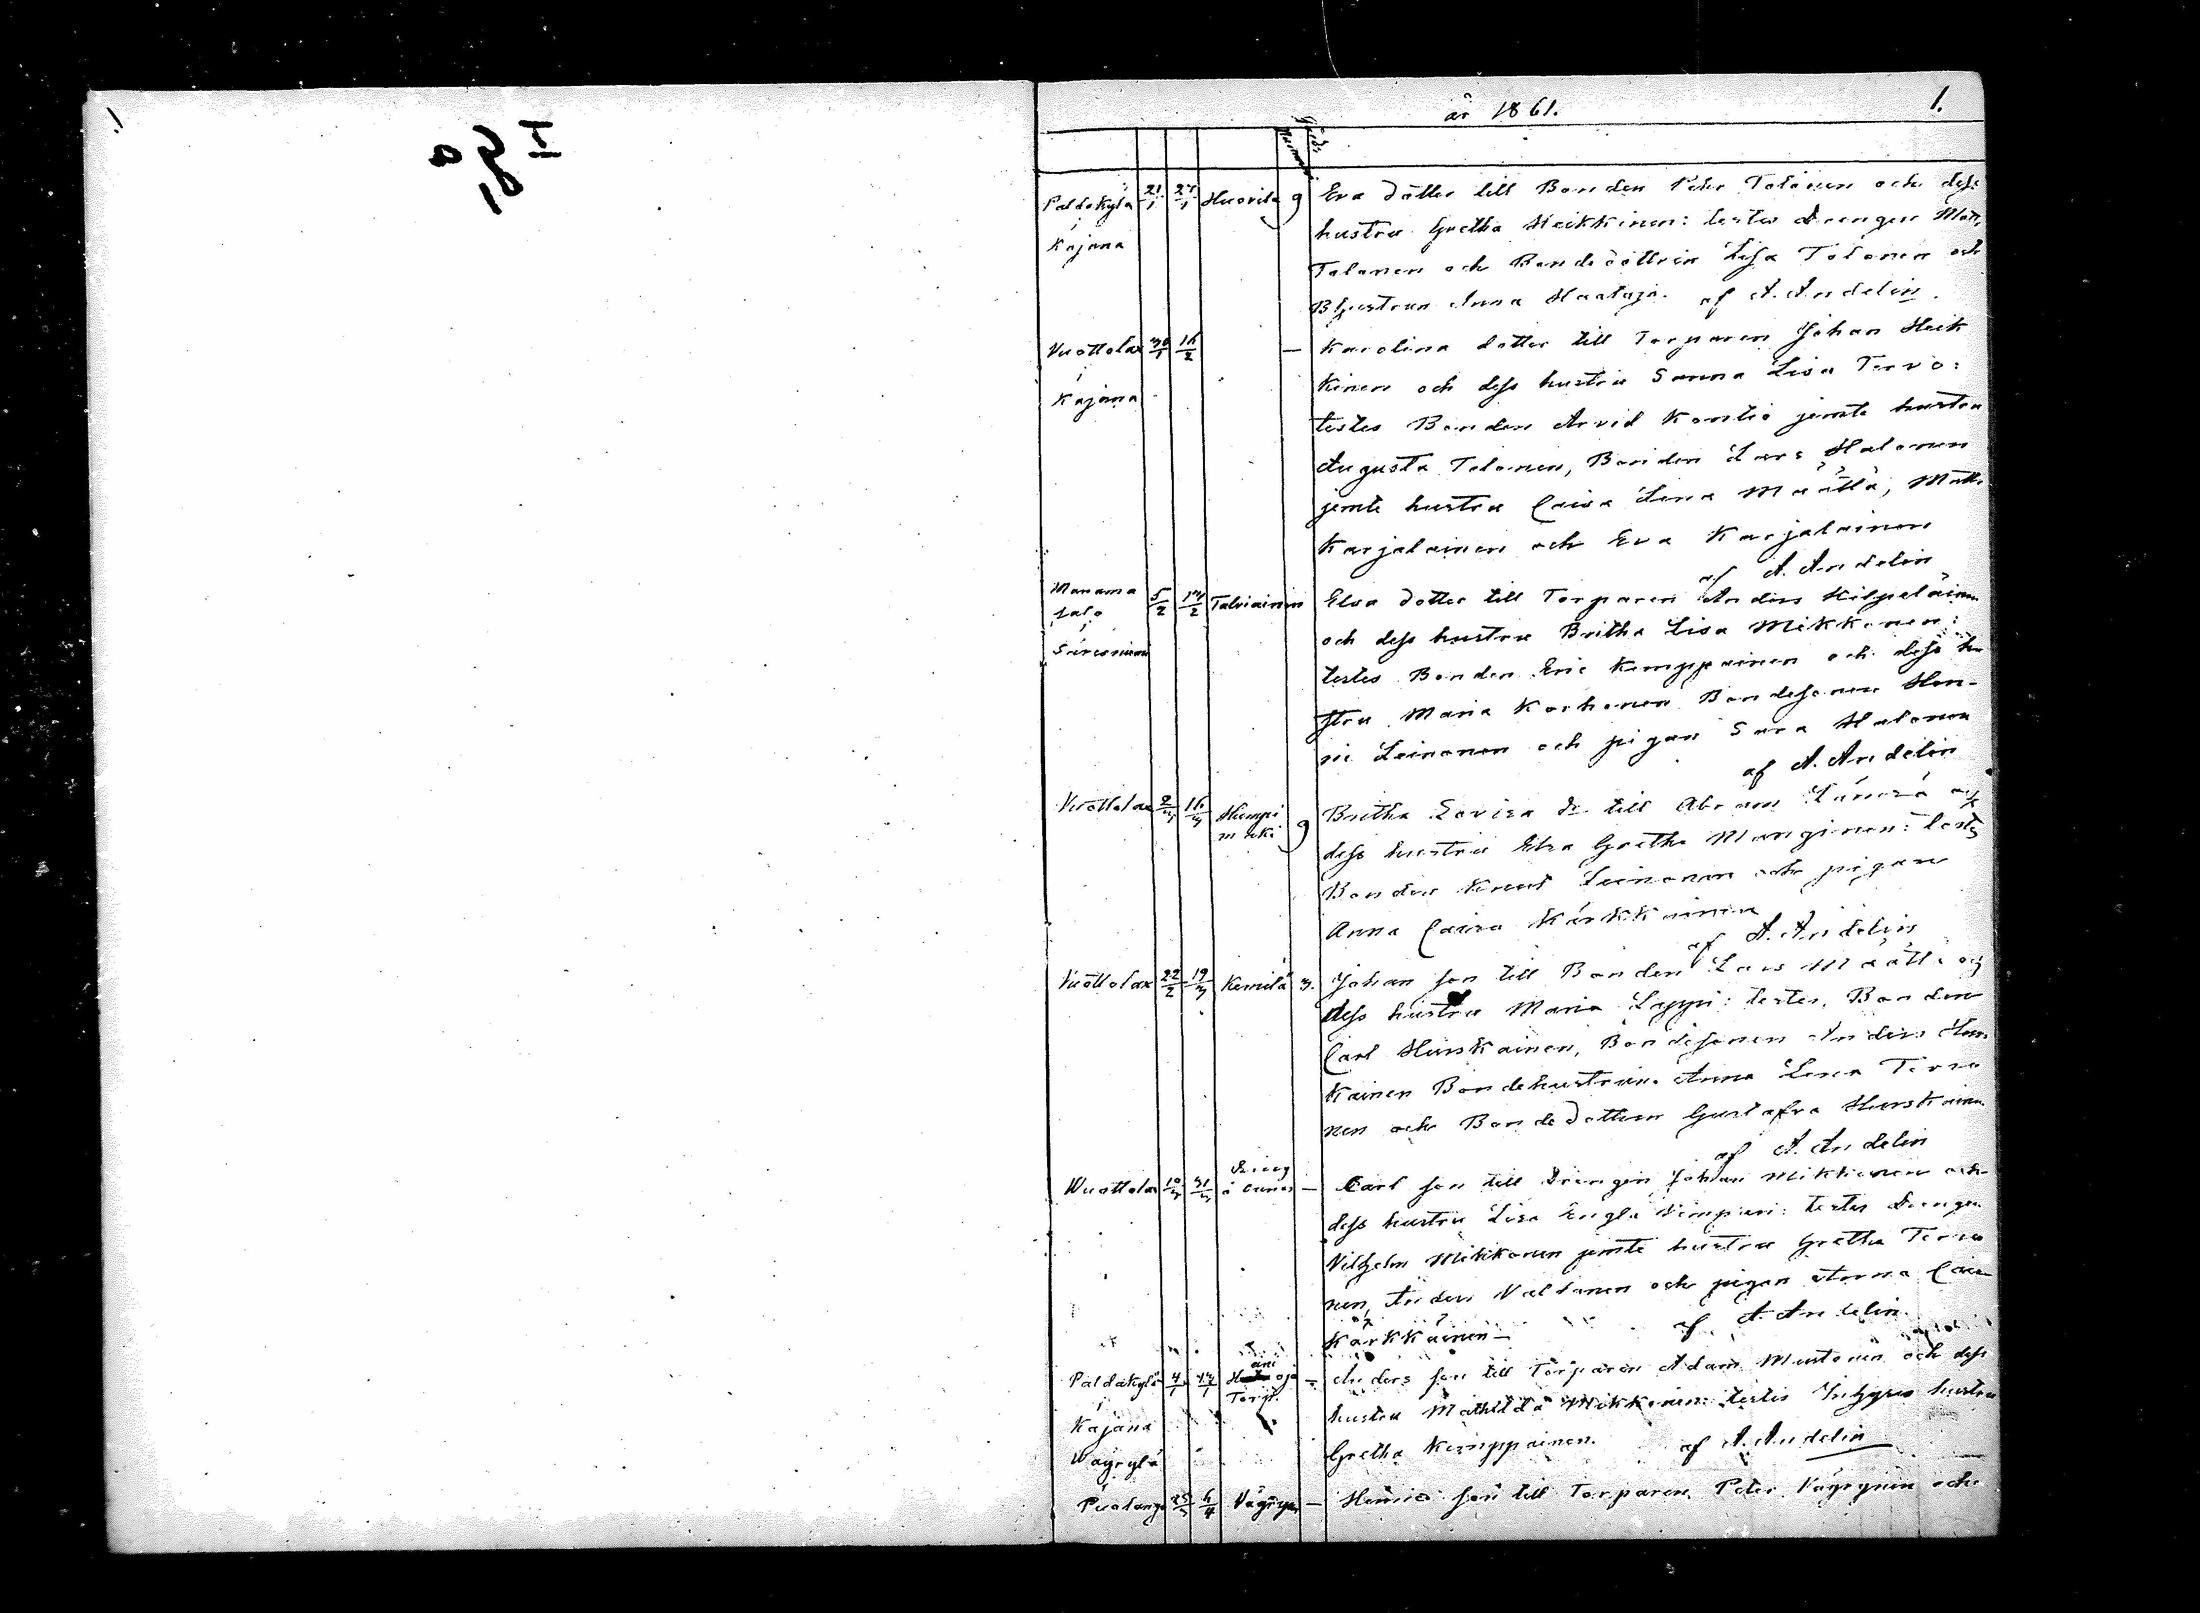 1.
I g a
år 1861.
1.
Paldokylä 21/1 27/1 Huovila 9 Eva dotter till Bonden Peter Tolonen och dess
hustru Gretha Heikkinen: testes Drengen Matts
Kajana
Tolonen och Bondedottren Lisa Tolonen och
BHustrun Anna Haataja. af A. Andelin.
Vuottolax 30/1 16/2 – Karolina dotter till Torparen Johan Heik
kinen och dess hustru Sanna Lisa Tervo:
Kajana
testes Bonden Arvid Kontio jemte hustru
Augusta Tolonen, Bonden Lars Halonen
jemte hustru Caisa Lena Määttä, Matts
Karjalainen och Eva Karjalainen
af A. Andelin
Manama
salo 5/2 17/2 Talviainen Elsa dotter till Torparen Anders Kilpeläinen
och dess hustru Britha Lisa Mikkonen:
testes Bonden Eric Kemppainen och dess hu
stru Maria Korhonen Bondesonen Hen-
ric Leinonen och pigan Sara Halonen
af A. Andelin
Vuottolax 2/3 16/3 Humpi
mäki 9 Britha Lovisa dr till Abram
dess hustru Elsa Gretha Manginen: testes
Bonden Knut Leinonen och pigan
Anna Caisa Kärkkäinen
af A. Andelin
Vuottolax 22/2 19/3 Kemilä 3. Johan son till Bonden Lars Määttä och
dess hustru Maria Lappi: testes, Bonden
Carl Hurskainen, Bondesonen Anders Hurs
kainen Bondehustrun Anna Lena Tervo
nen och Bondedottren Gustafva Hurskainen
af A. Andelin
Wuottolax 10/3 31/3 dreng
å – Carl son till Drengen Johan Mikkonen och
dess hustru Lisa Engla Kempari: testes Drengen
Vilhelm Mikkonen jemte hustru Gretha Tervo
nen, Anders Valtanen och pigan Anna Caisa
Kärkkäinen – af A. Andelin.
Paldokylä 4/1 17/1 oja
Torp. – Anders son till Torparen Adam Mustonen och dess
hustru Mathilda Mikkonen: testes Inhyses hustru
Kajana
Gretha Kemppainen. af A. Andelin
Wäyrylä
Puolango 25/3 6/4 Väyrynen – Henric son till Torparen Peter Väyrynen och